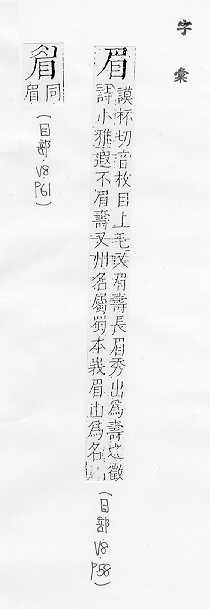 字彙
眉
謨杯切音枚目上毛眉壽長眉秀出為壽之徵
詩小雅遐不眉壽又州名屬蜀本峩眉山為名
(目部 V8 P58)
睂
同
眉
(目部 V8 P61)